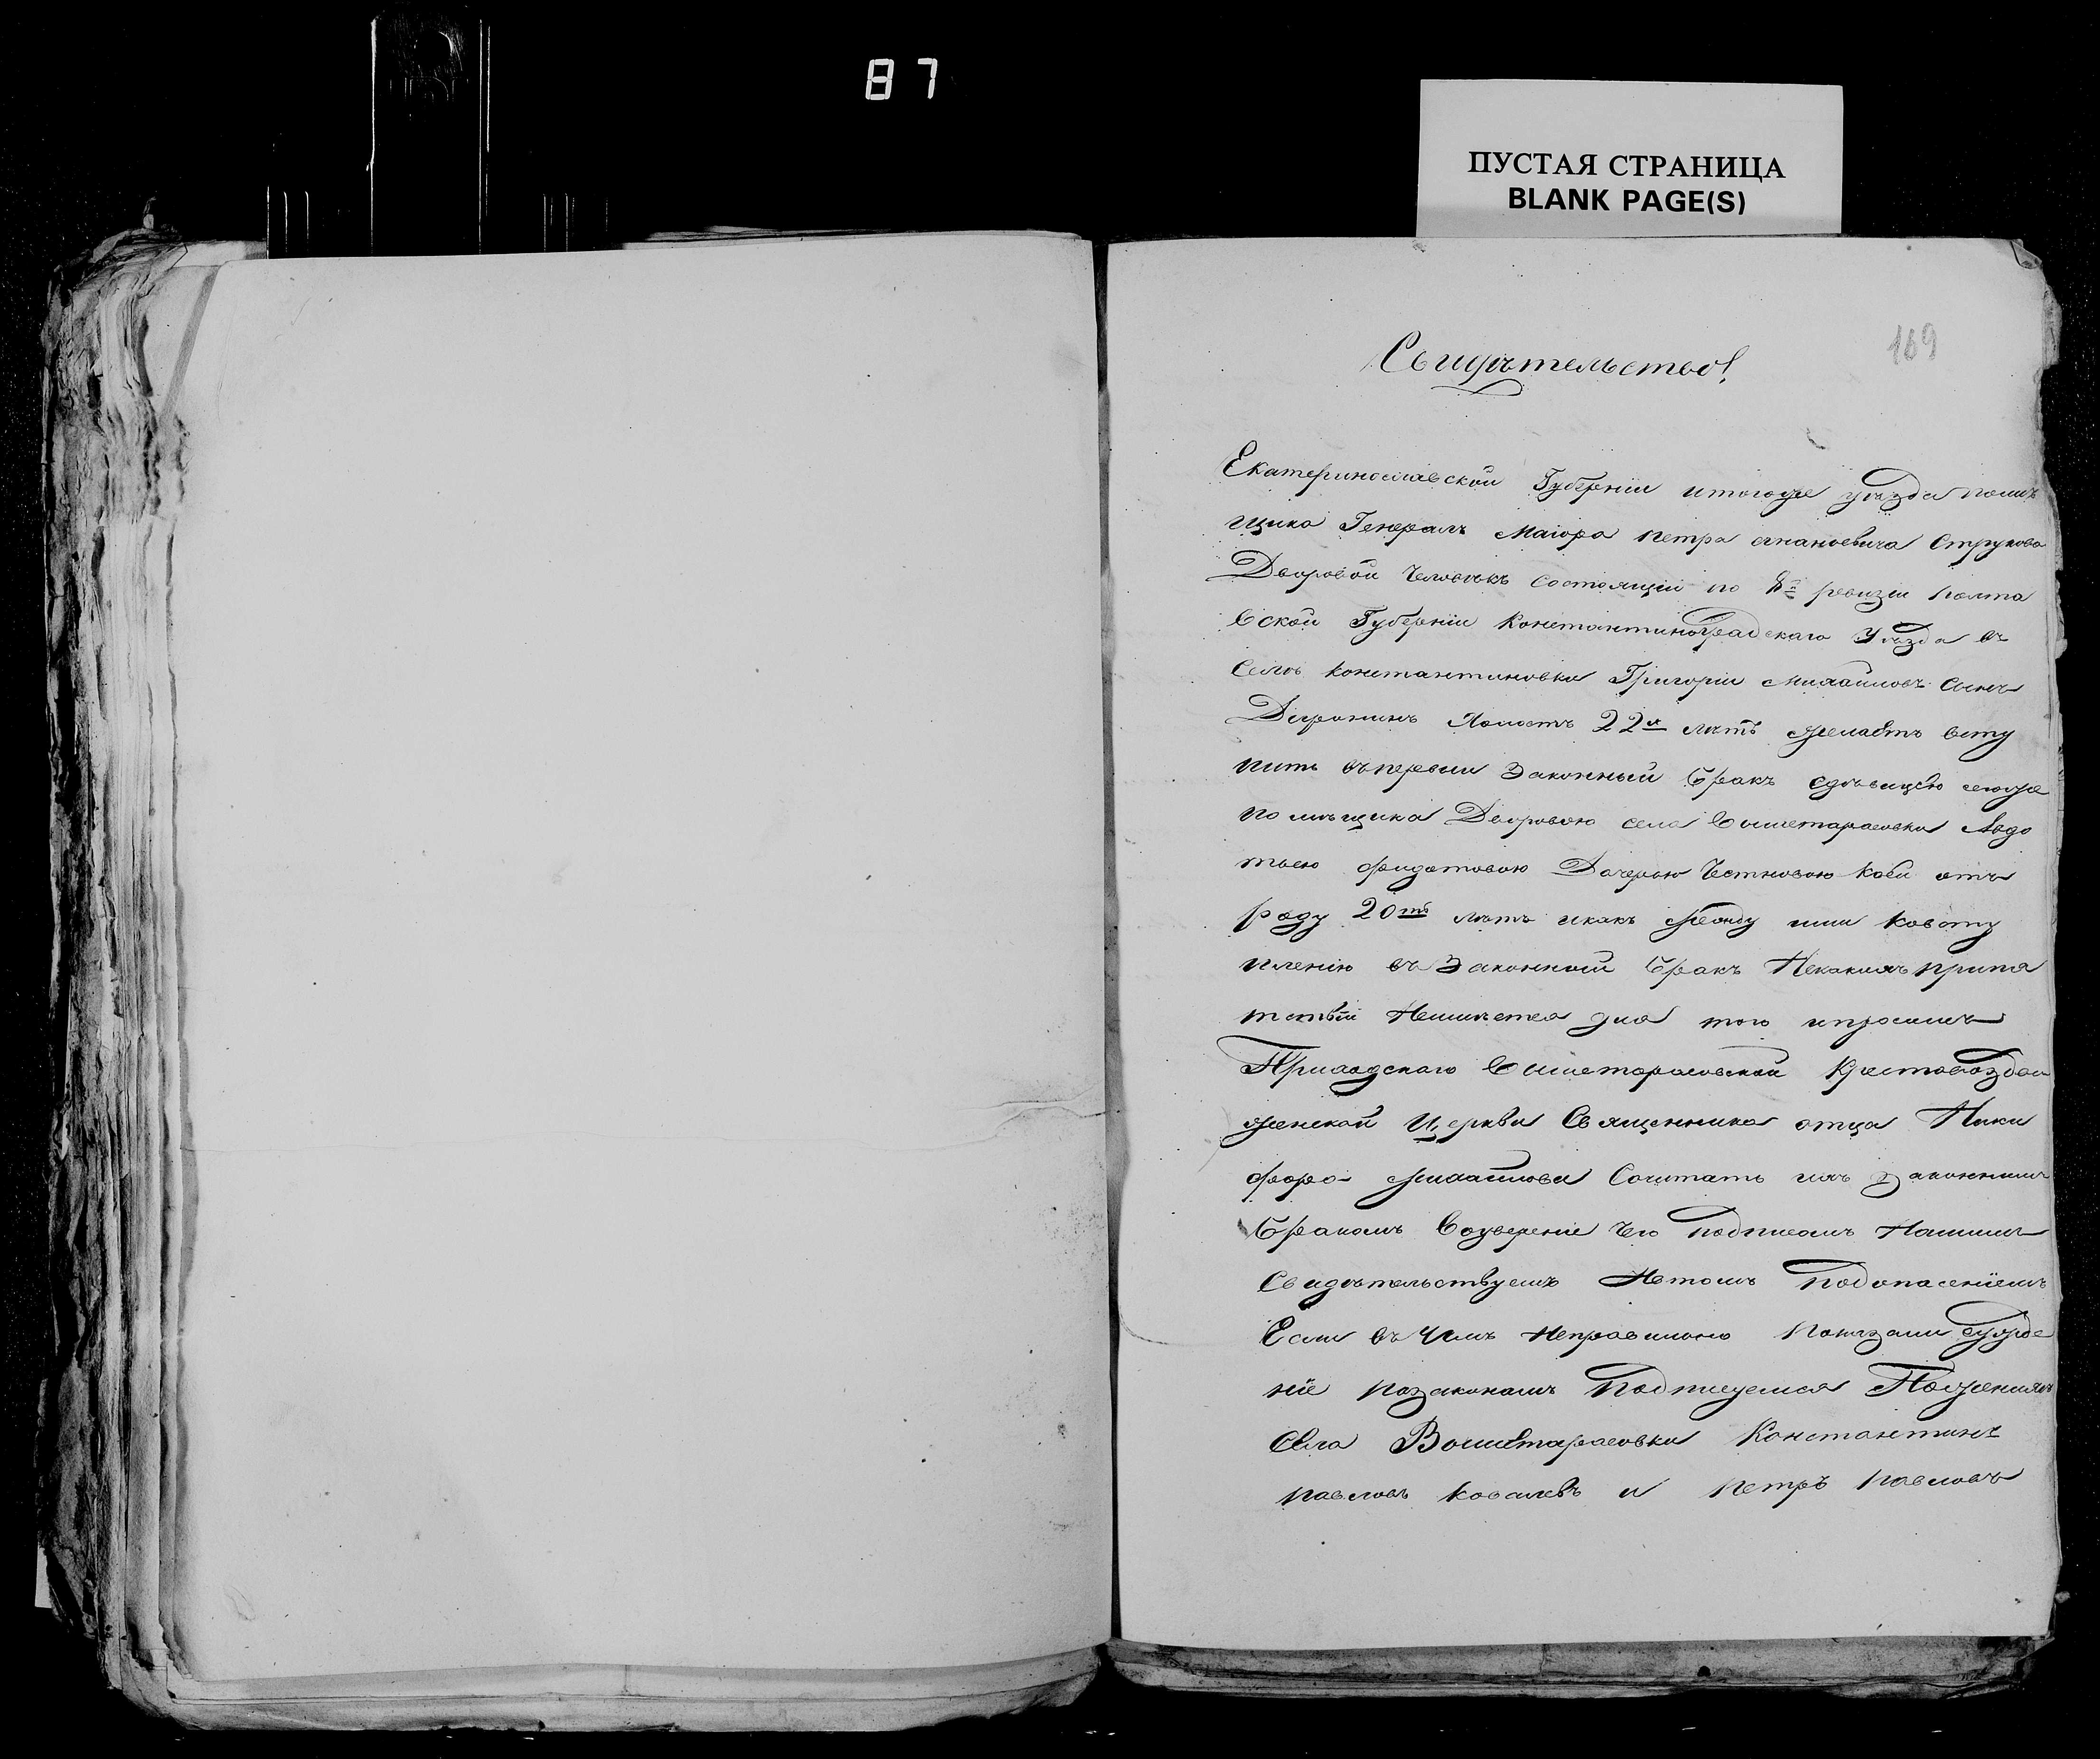 87
ПУСТАЯ СТРАНИЦА
BLANK PAGE(S)
169
Свидѣтельство!
Екатеринославской Губерніи итогоже уѣзда помѣ
щика Генералъ Маіора Петра Ананьевича Струкова
Дворовой Человѣкъ состоящій по 8й ревизіи Полта
вской Губерніи Константиноградскаго Уѣзда въ
Селѣ Константиновки Григорій Михайловъ Сынъ
Холостъ 22х лѣтъ желаетъ всту
пить въпервый Законный Бракъ сдѣвицею сегоже
помѣщика Дворовою села Вышетарасовки Авдо
тьею Дочерью коей отъ
роду 20ть лѣтъ икакъ между ими ковсту
пленію въ Законной Бракъ Некакихъ припя
тствій Неимѣется для того ипросимъ
Приходскаго Вышетарасовской Крестовоздви
женской Церкви Священника отца Ники
фора Михайлова Сочитать ихъ Законнымъ
Бракомъ Воуверение Чего Подписомъ Нашимъ
Свидѣтельствуемъ Нетомъ Подопасеніемъ
Если въ Чемъ Неправильно Показали Сужде
ніе позаконамъ Подписуемся Поженихѣ
Села Вышетарасовки Константинъ
Павловъ Ковалевъ и Петръ Павловъ